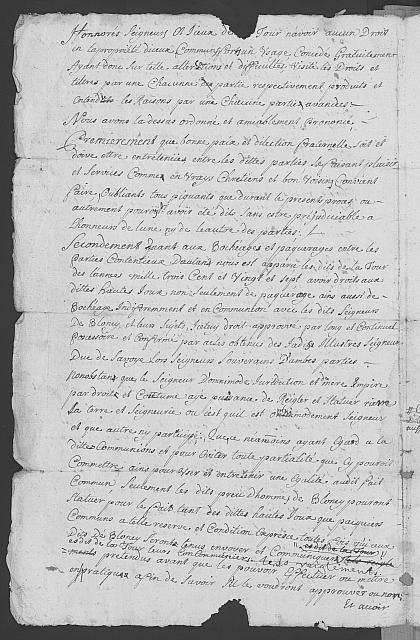 Honnorés Seigneurs et Iceux de la Tour n'avoir aucun Droit
en la proprieté d'iceux Communs fors un Usage Concedé Gratuitement
Ayant donc sur telle altercations et difficultes Visité les Droits et
tiltres par une Chacune des partie respectivement produits et
entendu les Raisons par une Chacune partie avancées.
Nous avons la dessus ordonné et amiablement Prononcé,
Premierement que bonne paix et dilection fraternelle soit et
doive estre entretenües entre les dittes parties se faisant plaisir
et Services Comme en Vrays Chrétiens et bon Voisins Convient
faire, Oubliants tous piquants que durant le present proces ou
autrement pourroyent avoir été dits sans estre prejudiciable a
l'honneur de l'une ny de l'autre des parties.
Secondement Quant aux Bocheages et paquerages entre les
Parties Contentieux D'autant nous est apparu les dits de la Tour
des lannées mille trois Cent et Vingt et sept avoir droits aux
dittes hautes Joux non seulement de paquerage ains aussi de
Bocheage Indifferemment et en Communion avec les dits Seigneurs
De Bloney et leurs Sujets, Icelluy droit approuvé par long et Continuel
Possessoire et Confirmé par actes obtenus des Jadis Illustres Seigneurs
Duc de Savoye Lors Seigneurs Souverains D'ambes parties
Nonobstant que le Seigneur D'onnimode Jurdiction et mere Impere
par droits et Coutume aye puissance de Reigler et Statuer riere
La terre et Seigneurie ou c'est qu'il est omnimodement Seigneur
et que autre ny participe. Que ce neamoins ayant Egard a la
ditte Communions et pour Eviter toute partialité que s'y pouroit
Commettre ains pour user et entretenir une Egalité audit fait
Commun Seulement les dits preud'homme de Bloney pouront
Statuer pour le fait tant des dittes hautes Joux que paquiers
Communs a telle reserve et Condition Expresse toutes fois qu'iceux
Dits De Bloney seront tenus envoyer et Communiquer
es dits de la Tour leurs Concommuniers
pretendus avant que les pouvoir Effectuer ou mettre
en pratique a fin de Savoir s'il le voudront approuver ou non
Et avoir